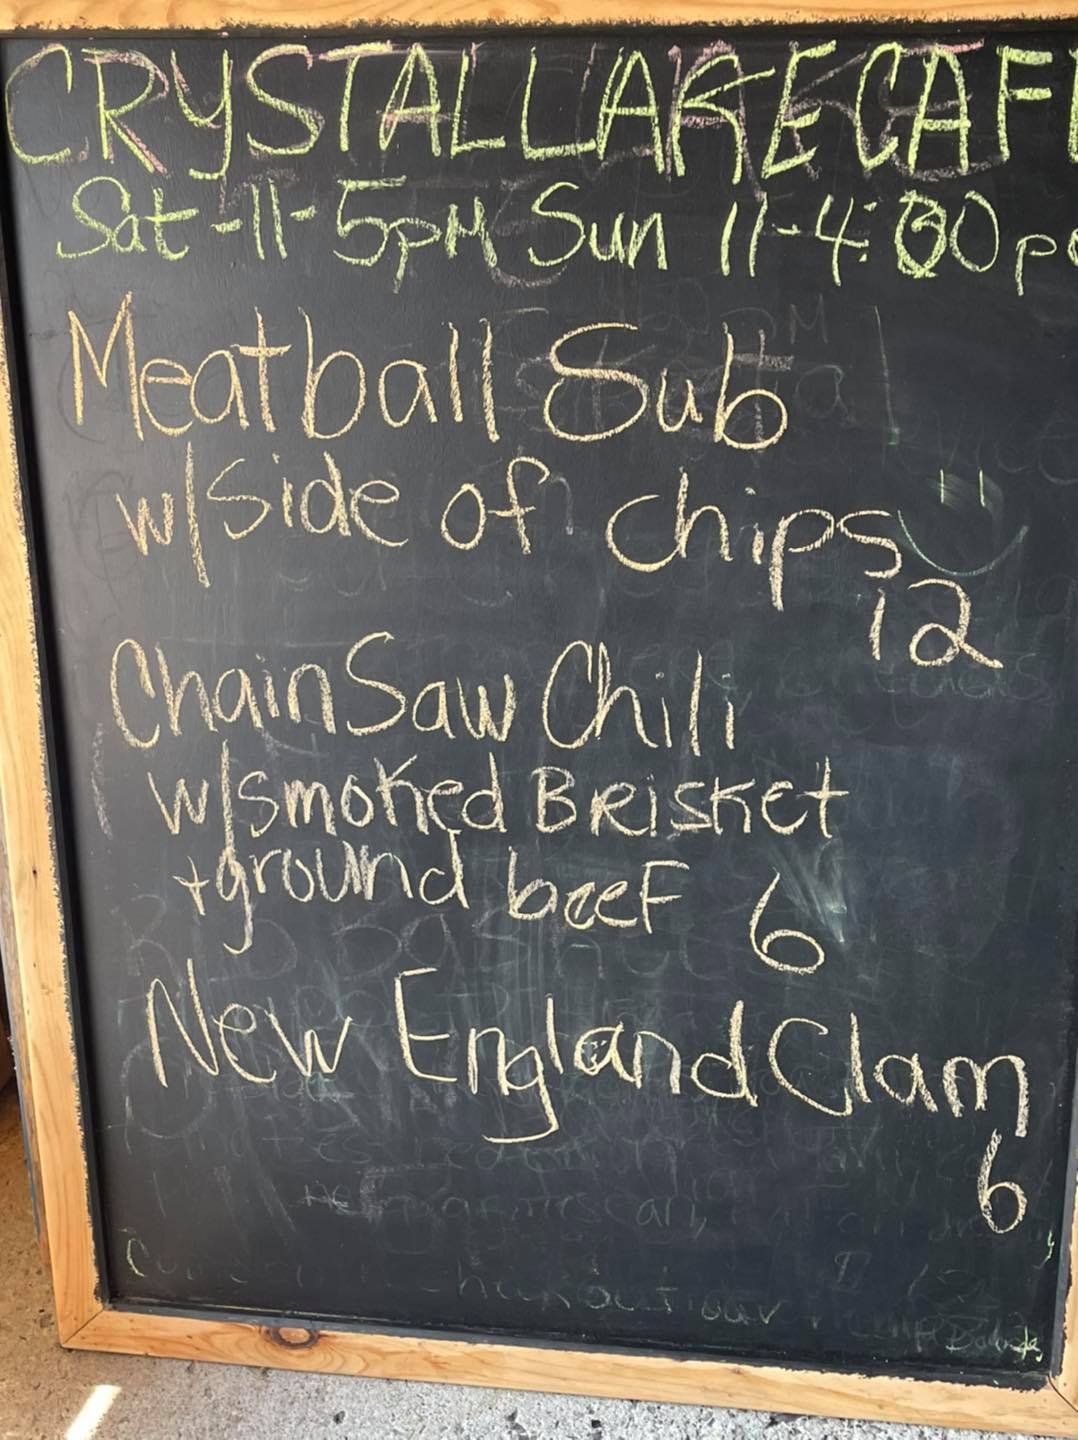 CRYSTAL LAKE CAF
Sat -11-5pm Sun 11-4:00 p
Meatball Sub
w/side of chips
12
ChainSaw Chili
w/smoked BRisket
+ground beeF 6
New England Clam
6